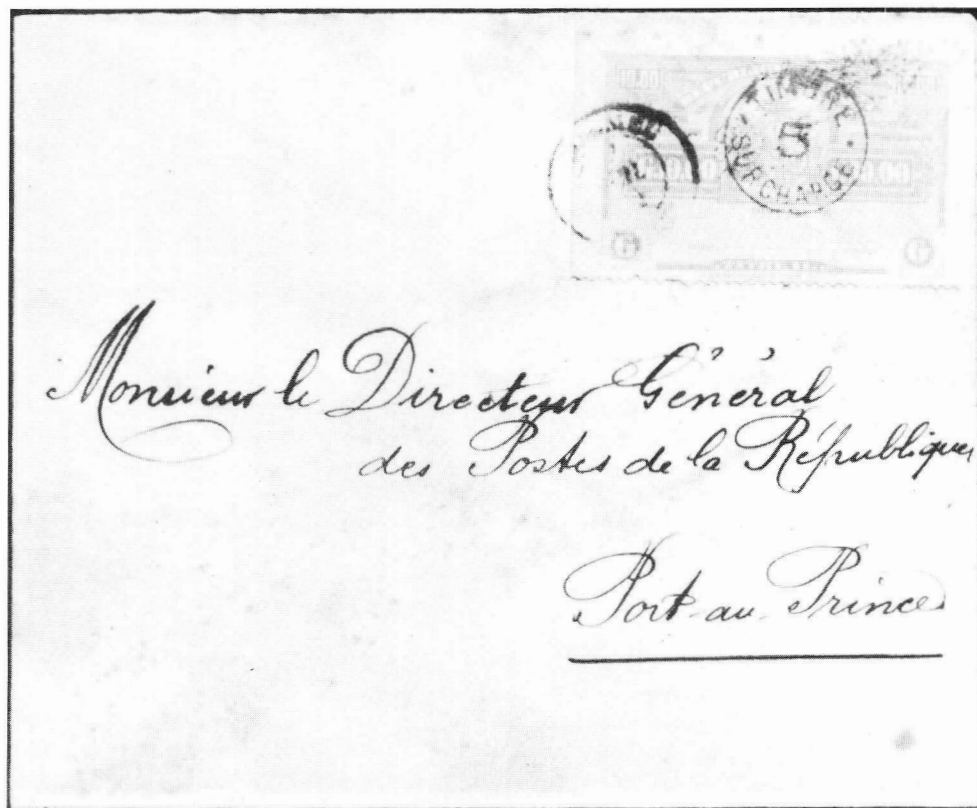 10.00
TIMBRE
5
SURCHARGE
10.00
Monsieur le Directeur Général
des Postes de la République
Port-au-Prince